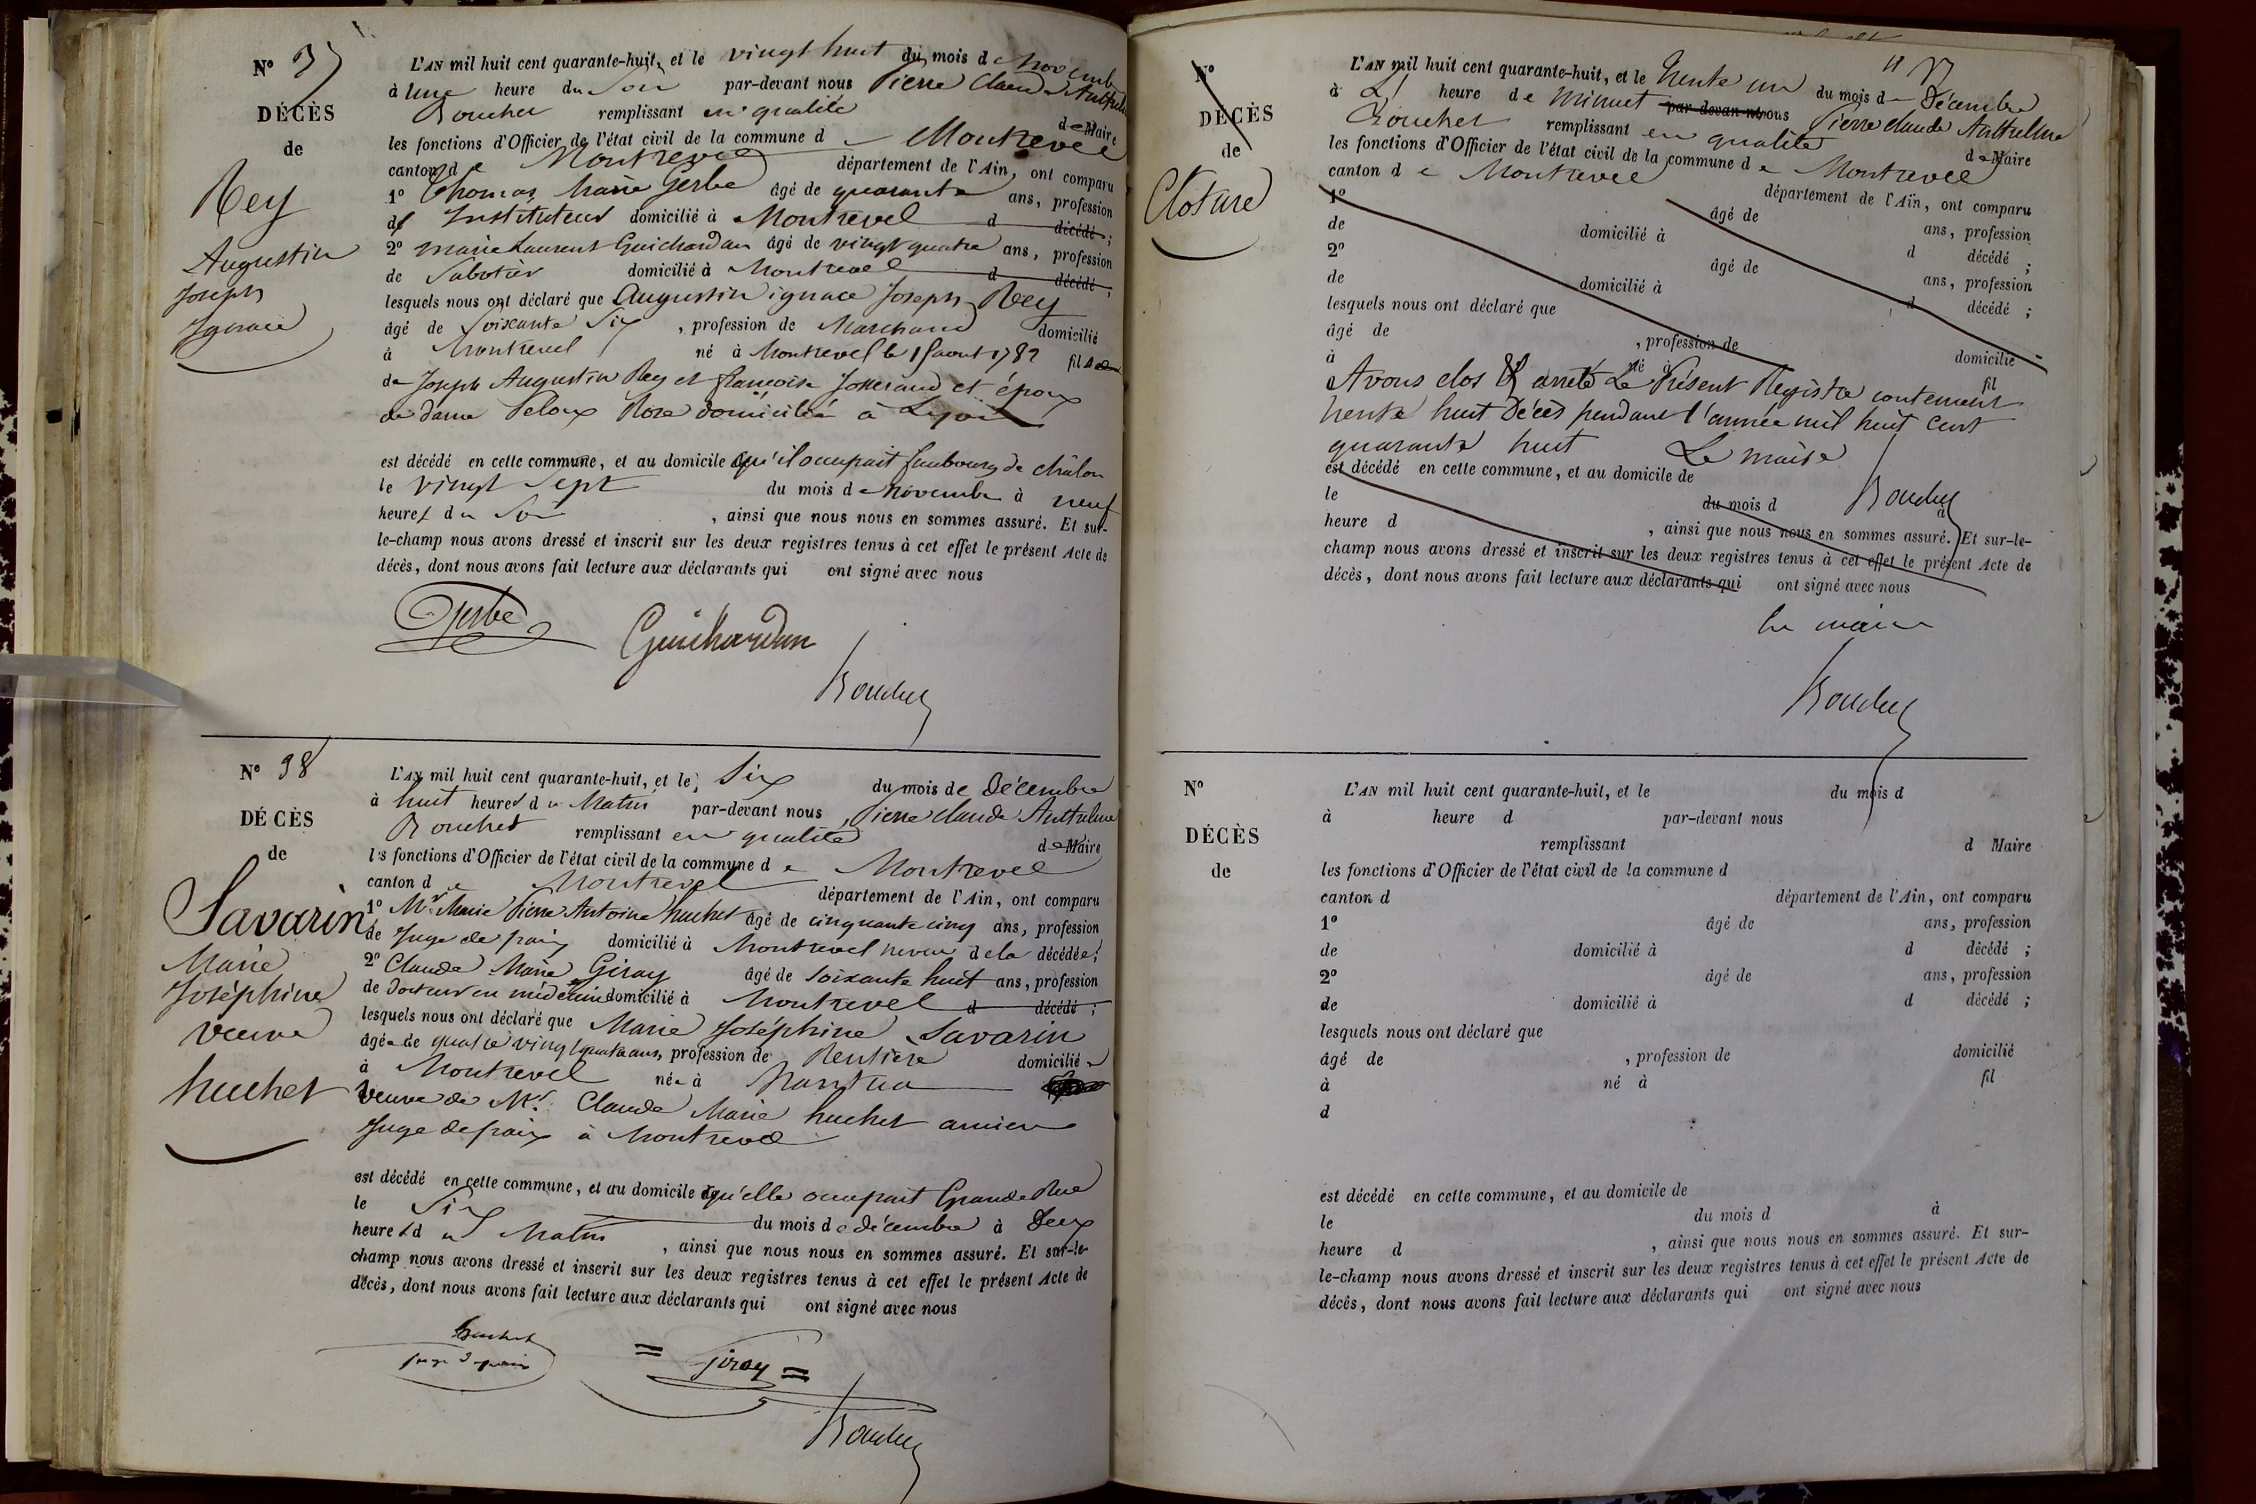 N° 37
DÉCÈS
de
Rey
Augustin
Joseph
Ignace
L'AN mil huit cent quarante-huit, et le vingt huit du mois de Novembre
à une heure du Soir par-devant nous Pierre Claude Anthelme
Bouchet remplissant en qualité de Maire
les fonctions d'Officier de l'état civil de la commune de Montrevel
canton de Montrevel département de l'Ain, ont comparu
1° Thomas Marie Gerbe âgé de quarante ans, profession
d' Instituteur domicilié à Montrevel d décédé ;
2° Marie Laurent Guichardan âgé de vingt quatre ans, profession
de Sabotier domicilié à Montrevel d décédé ;
lesquels nous ont déclaré que Augustin ignace Joseph Rey
âgé de Soixante Six , profession de Marchand domicilié
à Montrevel né à Montrevel le 15 aout 1782 fils
de Joseph Augustin Rey et françoise Josserand et époux
de dame Peloux Rose domiciliée à Lyon
est décédé en cette commune, et au domicile qu'il occupait faubourg de châlon
le vingt Sept du mois de novembre à neuf
heures du Soir , ainsi que nous nous en sommes assuré. Et sur-
le-champ nous avons dressé et inscrit sur les deux registres tenus à cet effet le présent Acte de
décès, dont nous avons fait lecture aux déclarants qui ont signé avec nous
Gerbe
Guichardan
Bouchet
N° 38
DÉCÈS
de
Savarin
Marie
Joséphine
veuve
huchet
L'AN mil huit cent quarante-huit, et le Six du mois de Décembre
à huit heures du Matin par-devant nous Pierre Claude Anthelme
Bouchet remplissant en qualité de Maire
les fonctions d'Officier de l'état civil de la commune de Montrevel
canton de Montrevel département de l'Ain, ont comparu
1° Mr Marie Pierre Antoine huchet âgé de cinquante cinq ans, profession
de Juge de paix domicilié à Montrevel neveu de la décédée ;
2° Claude Marie Giray âgé de soixante huit ans, profession
de docteur en médecine domicilié à Montrevel d décédé ;
lesquels nous ont déclaré que Marie Joséphine Savarin
âgée de quatre vingt quatre ans, profession de Rentière domiciliée
à Montrevel née à Nantua
veuve de Mr. Claude Marie huchet ancien
Juge de paix à Montrevel
est décédé en cette commune, et au domicile qu'elle occupait Grande Rue
le Six du mois de décembre à Deux
heures du Matin , ainsi que nous nous en sommes assuré. Et sur-le-
champ nous avons dressé et inscrit sur les deux registres tenus à cet effet le présent Acte de
décès, dont nous avons fait lecture aux déclarants qui ont signé avec nous
huchet
juge de paix
= Giray =
Bouchet
N°
DÉCÈS
de
Clôture
L'AN mil huit cent quarante-huit, et le trente un du mois de Décembre
à heure de minuit par-devant nous Pierre Claude Anthelme
Bouchet remplissant en qualité de Maire
les fonctions d'Officier de l'état civil de la commune de Montrevel
canton de Montrevel département de l'Ain, ont comparu
1° âgé de ans, profession
de domicilié à d décédé ;
2° âgé de ans, profession
de domicilié à d décédé ;
lesquels nous ont déclaré que
âgé de , profession de domicilié
à né à fil
Avons clos et arrêté Le Présent Registre contenant
trente huit Décès pendant l'année mil huit cent
quarante huit Le maire
est décédé en cette commune, et au domicile de
Bouchet
le du mois d à
heure d , ainsi que nous nous en sommes assuré. Et sur-le-
champ nous avons dressé et inscrit sur les deux registres tenus à cet effet le présent Acte de
décès, dont nous avons fait lecture aux déclarants qui ont signé avec nous
Le maire
Bouchet
N°
DÉCÈS
de
L'AN mil huit cent quarante-huit, et le du mois d
à heure d par-devant nous
remplissant d Maire
les fonctions d'Officier de l'état civil de la commune d
canton d département de l'Ain, ont comparu
1° âgé de ans, profession
de domicilié à d décédé ;
2° âgé de ans, profession
de domicilié à d décédé ;
lesquels nous ont déclaré que
âgé de , profession de domicilié
à né à fil
d
est décédé en cette commune, et au domicile de
le du mois d à
heure d , ainsi que nous nous en sommes assuré. Et sur-
le-champ nous avons dressé et inscrit sur les deux registres tenus à cet effet le présent Acte de
décès, dont nous avons fait lecture aux déclarants qui ont signé avec nous